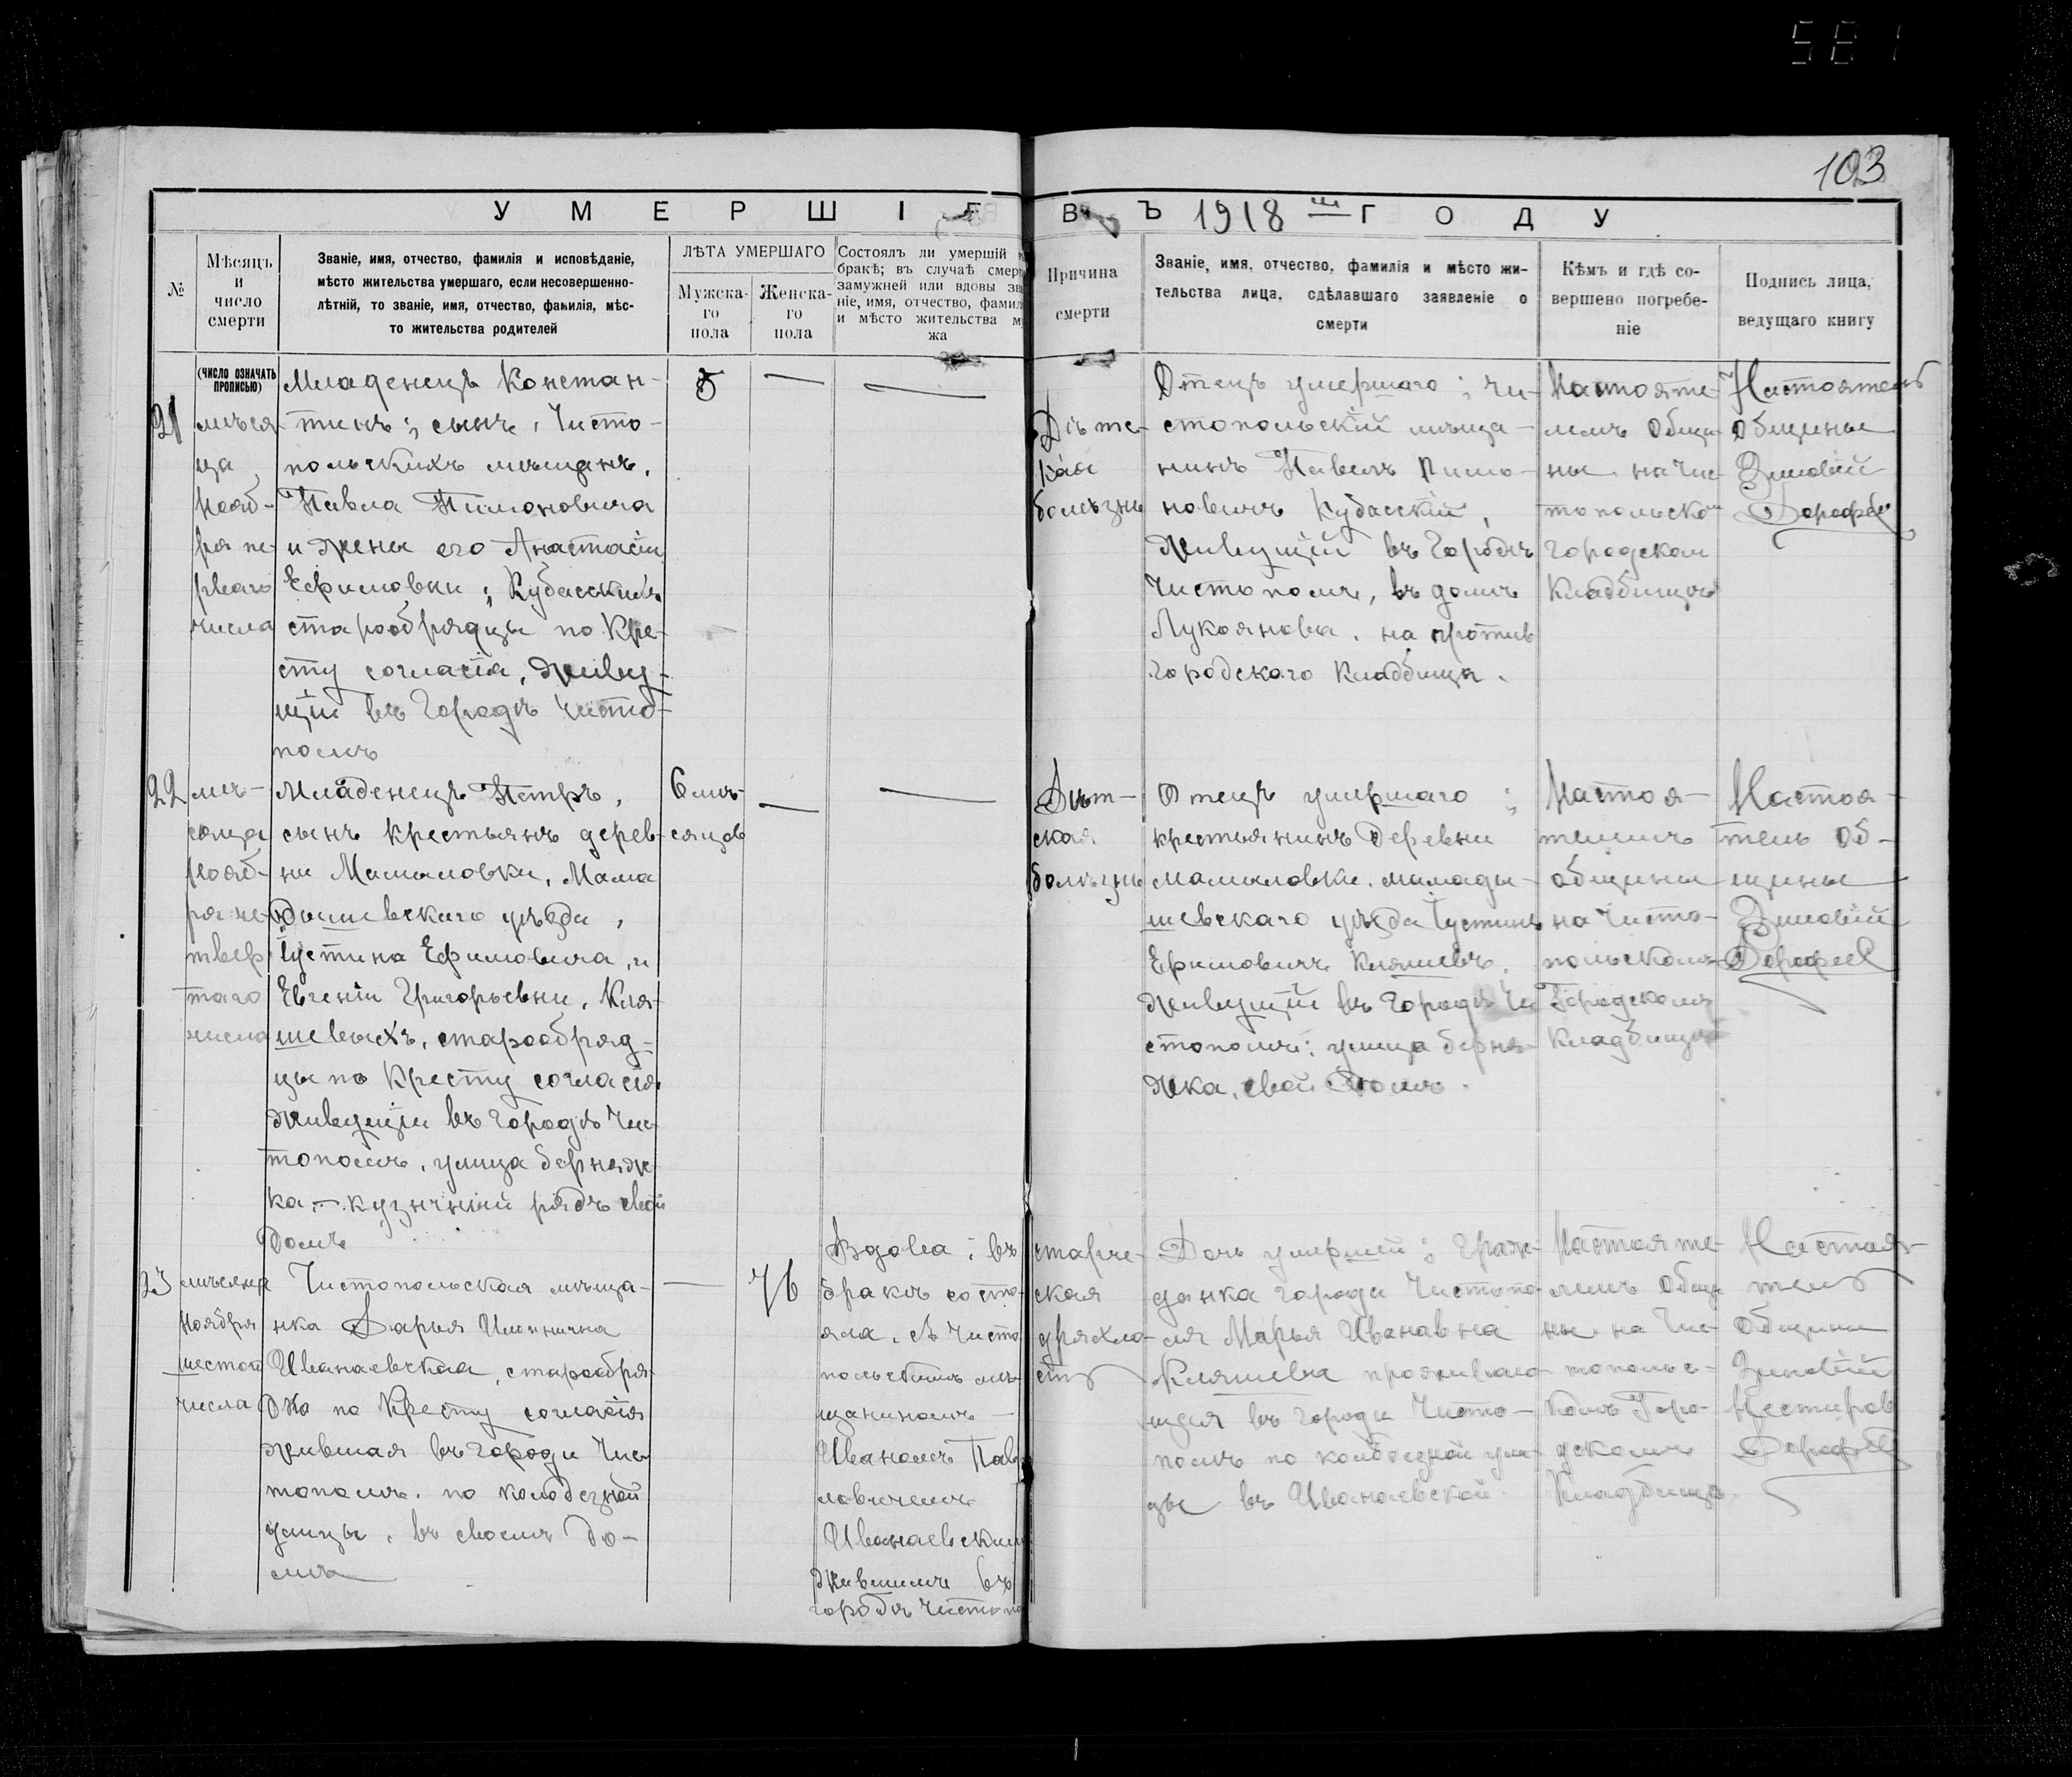 581
103
УМЕРШІЕ ВЪ 1918 ш ГОДУ
№
Мѣсяцъ
и
число
смерти
Званіе, имя, отчество, фамилія и исповѣданіе,
мѣсто жительства умершаго, если несовершенно-
лѣтній, то званіе, имя, отчество, фамилія, мѣс-
то жительства родителей
ЛѢТА УМЕРШАГО
Мужска-
го
пола
Женска-
го
пола
Состоялъ ли умершій
бракѣ; въ случаѣ смер
замужней или вдовы зв
ніе, имя, отчество, фамил
и мѣсто жительства м
жа
Причина
смерти
Званіе, имя, отчество, фамилія и мѣсто жи-
тельства лица, сдѣлавшаго заявленіе о
смерти
Кѣмъ и гдѣ со-
вершено погребе-
ніе
Подпись лица,
ведущаго книгу
(ЧИСЛО ОЗНАЧАТЬ
ПРОПИСЬЮ)
21
мѣся
ца
Нояб-
ря пе-
рваго
числа
Младенецъ Констан-
тинъ; сынъ, Чисто-
польскихъ мѣщанъ,
Павла Пимоновича
и жены его Анастасіи
Ефимовны; Кубасскихъ
старообрядцы по Кре-
сту согласія, живу-
щіи въ Городѣ Чисто-
полѣ
5
—
—
Дѣте-
кая
болѣзнь
Отецъ умершаго; Чи-
стопольскій мѣща-
нинъ Павелъ Пимо-
новичъ Кубасскій,
Живущій въ Городѣ
Чистополѣ, въ домѣ
Лукоянова, на против
городского Кладбища.
Настояте-
лемъ Общи-
ны на Чис-
топольско
городском
Кладбищѣ
Настоятель
Общины
Зиновій
Дорофе
22
мѣ-
сяца
Нояб-
ря че-
твер
таго
числа
Младенецъ Петръ,
сынъ крестьянъ дерев-
ни Мамыловки, Мама
дышевскаго уѣзда,
Іустина Ефимовича, и
Евгеніи Григорьевны, Кля-
шевыхъ, старообряд-
цы по Кресту согласія
живущіи въ городѣ Чис
тополѣ, улица берняж
ка — кузнчный рядъ свой
домъ
6 мѣ-
сяцов
—
—
Дѣт-
ская
болѣзнь
Отецъ умершаго;
крестьянинъ Деревни
Мамыловки, мамады-
шевскаго уѣзда Іустинъ
Ефимовичъ Кляшевъ,
живущій въ Городѣ Чи
стополѣ; улица берня-
жка, свой Домъ.
Настоя-
телемъ
общины
на Чисто-
польскомъ
Городскомъ
Кладбищѣ
Настоя-
тель Об-
щины
Зиновій
Дорофеев
23
мѣсяца
Ноября
шестого
числа
Чистопольская мѣща-
нка Дарья Ильинична
Иванаевская, старообря-
дка по Кресту согласія
жившая въ городи Чис
тополѣ, по колодезной
улицы, въ своемъ до-
мѣ
—
76
Вдова; въ
бракѣ состо-
яла, съ Чисто
польскимъ мѣ-
щаниномъ —
Иваномъ Пав
ловичемъ
Иванаевским
жившимъ въ
городѣ Чистопо
старче-
ская
дряхло-
сть
Дочь умершей; Граж-
данка города Чистопо-
ля Марья Ивановна
Кляшева проживаю-
щая въ городи Чисто-
полѣ по колодезной ули-
цы въ Иванаевской.
Настояте-
лемъ Общи
ны на Чис-
топольс-
комъ Горо-
дскомъ
Кладбищѣ.
Настоя-
тель
Общины
Зиновій
Нестеров
Дорофеев